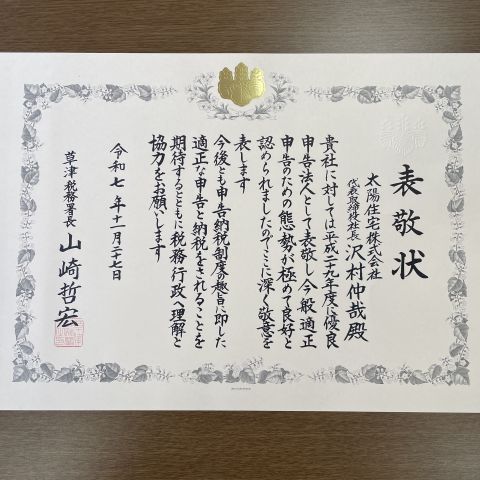 表敬状
太陽住宅株式会社
代表取締役社長 沢村仲哉殿
貴社に対しては平成二十九年度に優良
申告法人として表敬し今般適正
申告のための態勢が極めて良好と
認められましたのでここに深く敬意を
表します
今後とも申告納税制度の趣旨に即した
適正な申告と納税をされることを
期待するとともに税務行政へ理解と
協力をお願いします
令和七年十一月二十七日
草津税務署長 山崎哲宏